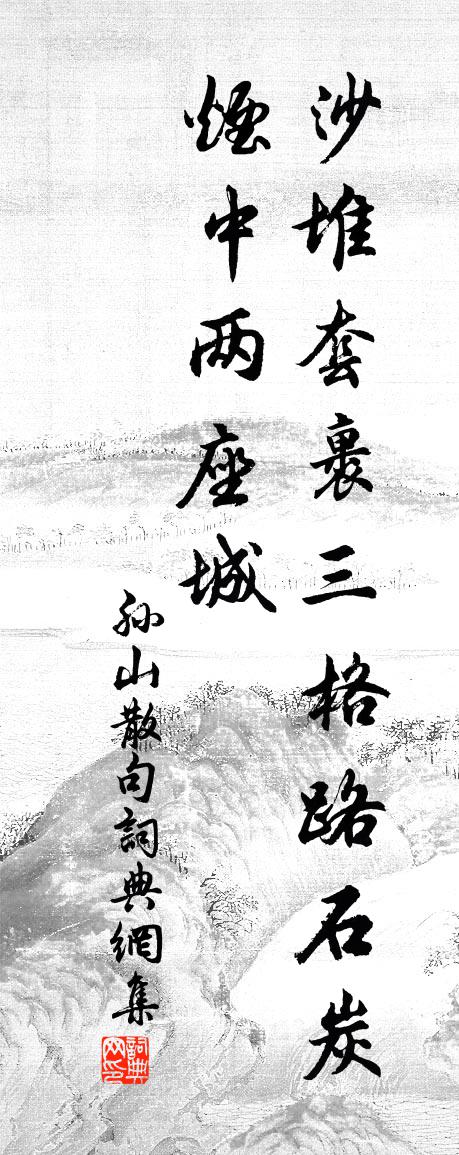 沙堆套裏三格路石炭
煙中两座城
孫山散句詞典網集
詞典网印